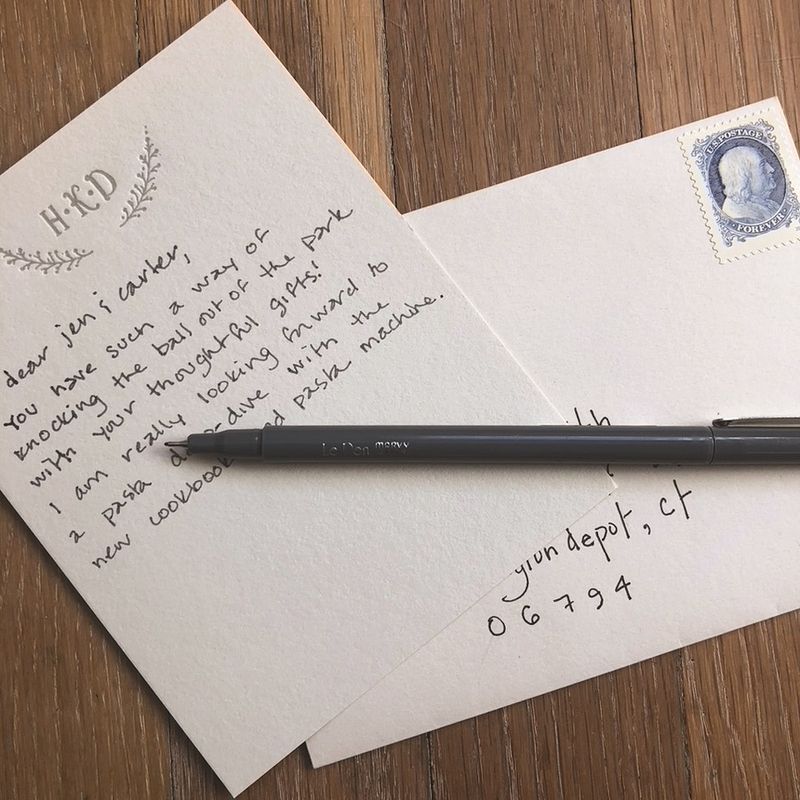 H·K·D
dear jen & carter,
you have such a way of
knocking the ball out of the park
with your thoughtful gifts!
I am really looking forward to
a pasta dive with the
new cookbook pasta machine.
Le Pen MARVY
U.S. POSTAGE
FOREVER
depot, ct
06794